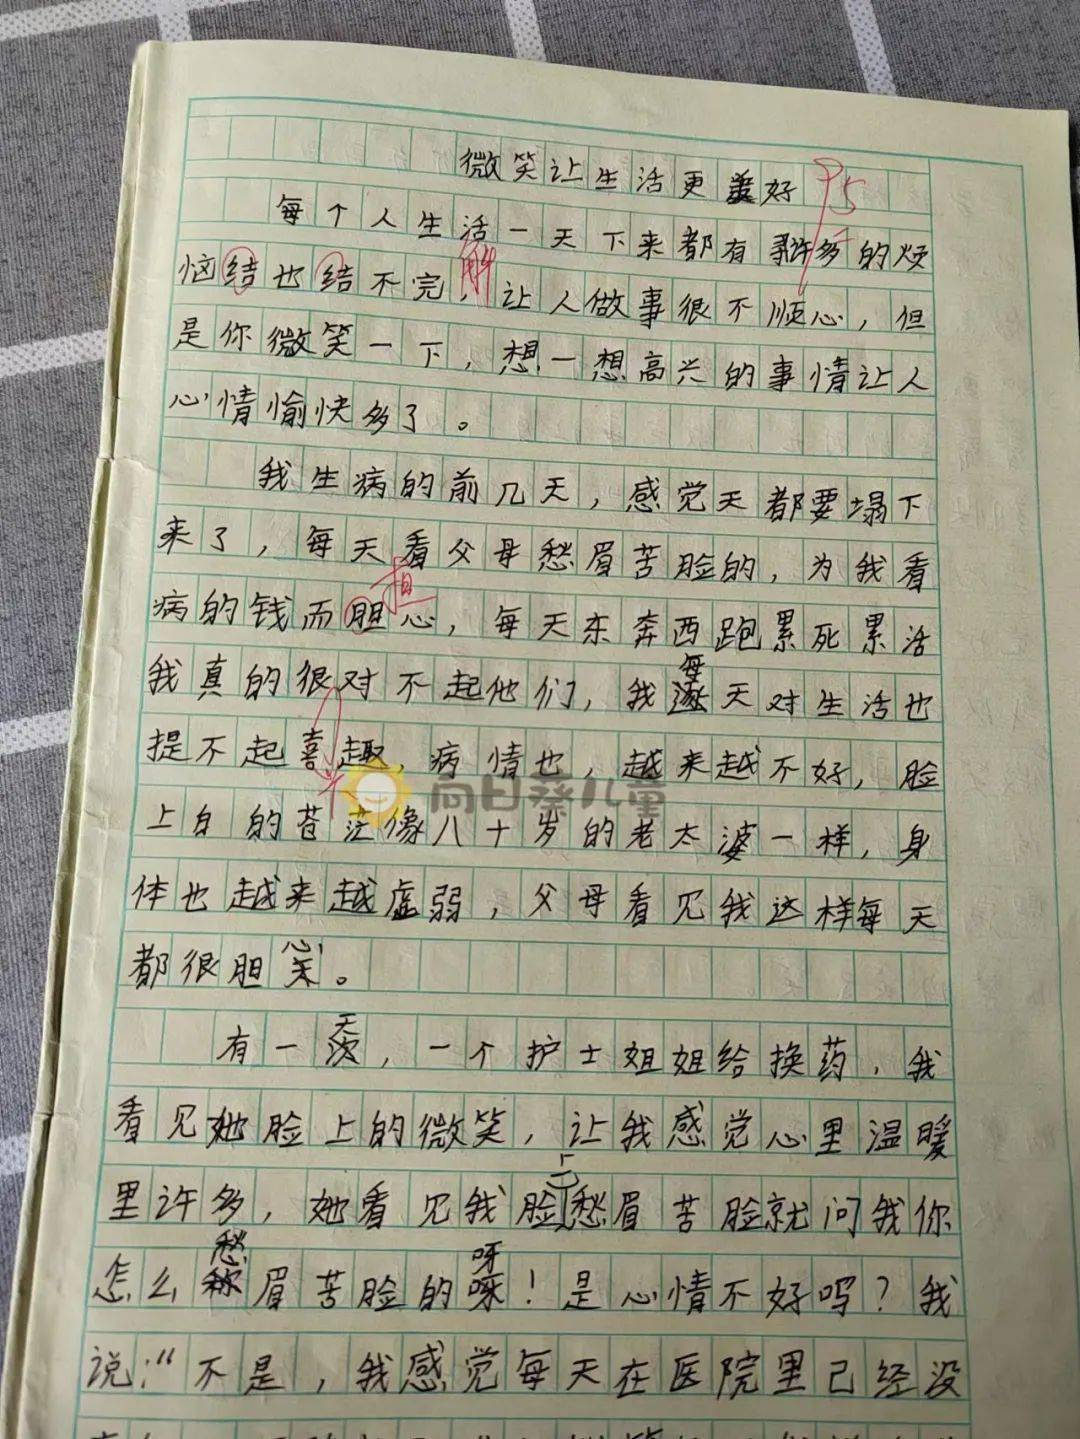 微笑让生活更美好
95
每个人生活一天下来都有许多的烦
恼结也结不完，让人做事很不顺心，但
解
是你微笑一下，想一想高兴的事情让人
心情愉快多了。
我生病的前几天，感觉天都要塌下
来了，每天看父母愁眉苦脸的，为我看
担
病的钱而胆心，每天东奔西跑累死累活
每
我真的很对不起他们，我天对生活也
提不起喜趣，病情也，越来越不好，脸
向日葵儿童
上白的苍茫像八十岁的老太婆一样，身
体也越来越虚弱，父母看见我这样每天
都很胆心。
天
有一，一个护士姐姐给换药，我
看见她脸上的微笑，让我感觉心里温暖
上
里许多，她看见我脸愁眉苦脸就问我你
愁 呀
怎么眉苦脸的！是心情不好吗？我
说：“不是，我感觉每天在医院里己经没